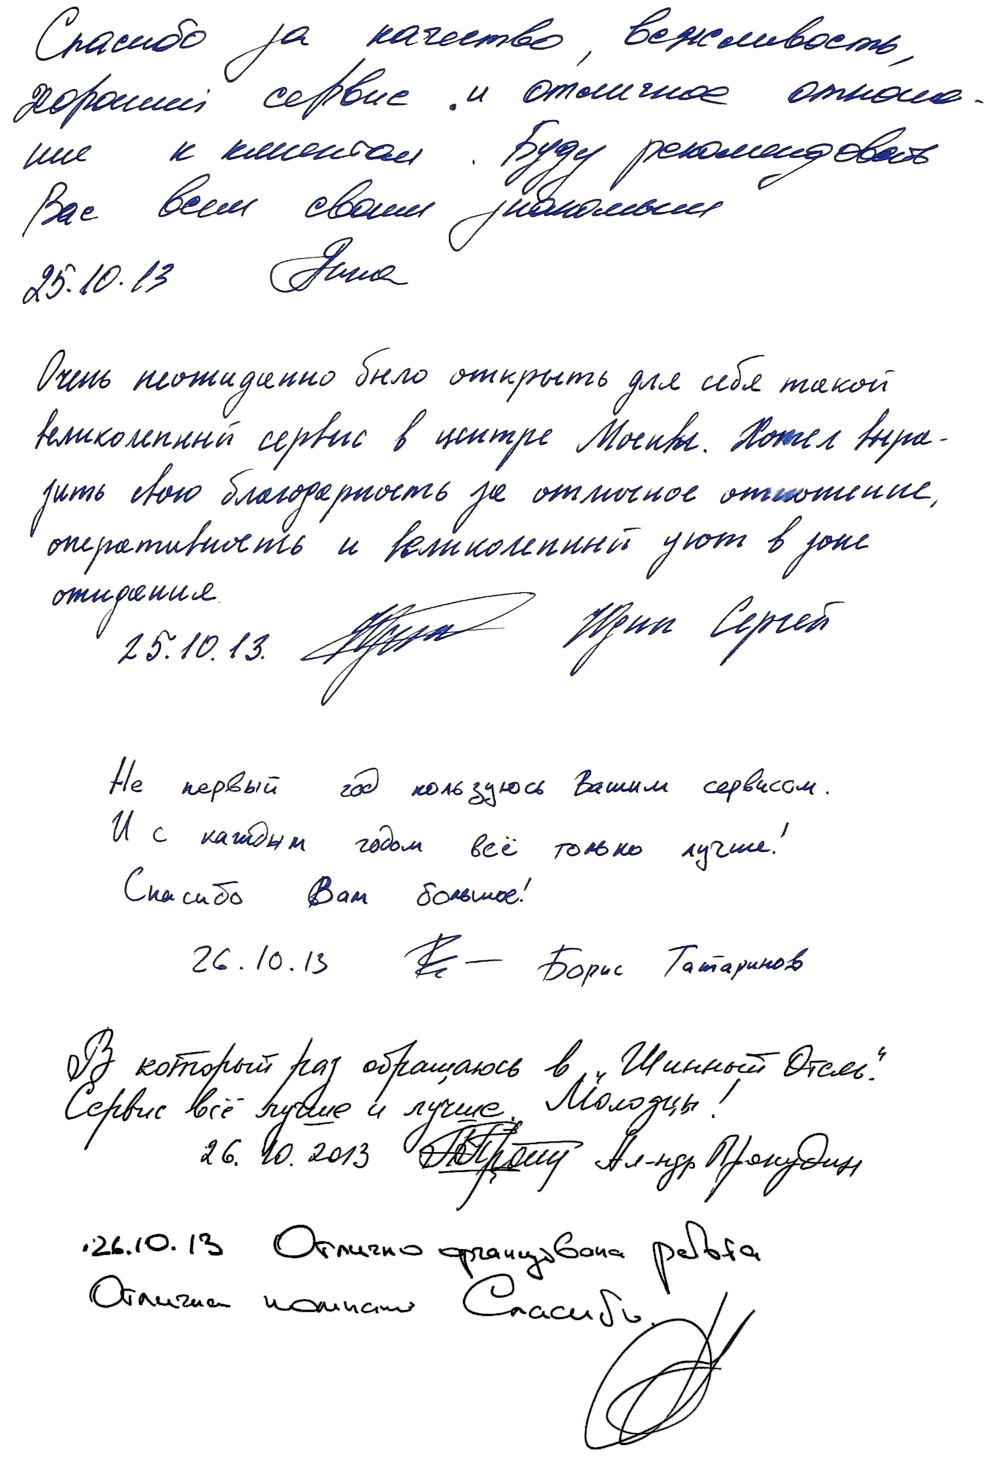 Спасибо за качество, вежливость,
хороший сервис и отличное отноше-
ние к клиентам. Буду рекомендовать
Вас всем своим знакомым
25.10.13
Очень неожиданно было открыть для себя такой
великолепный сервис в центре Москвы. Хотел выра-
зить свою благодарность за отличное отношение,
оперативность и великолепный уют в зоне
ожидания.
25.10.13. Юдин Сергей
Не первый год пользуюсь Вашим сервисом.
И с каждым годом всё только лучше!
Спасибо Вам большое!
26.10.13 Борис Татаринов
В который раз обращаюсь в „Шинный Отель".
Сервис всё лучше и лучше. Молодцы!
26.10.2013 Ал-ндр Прокудин
26.10.13 Отлично организована работа
Отличная комната Спасибо.